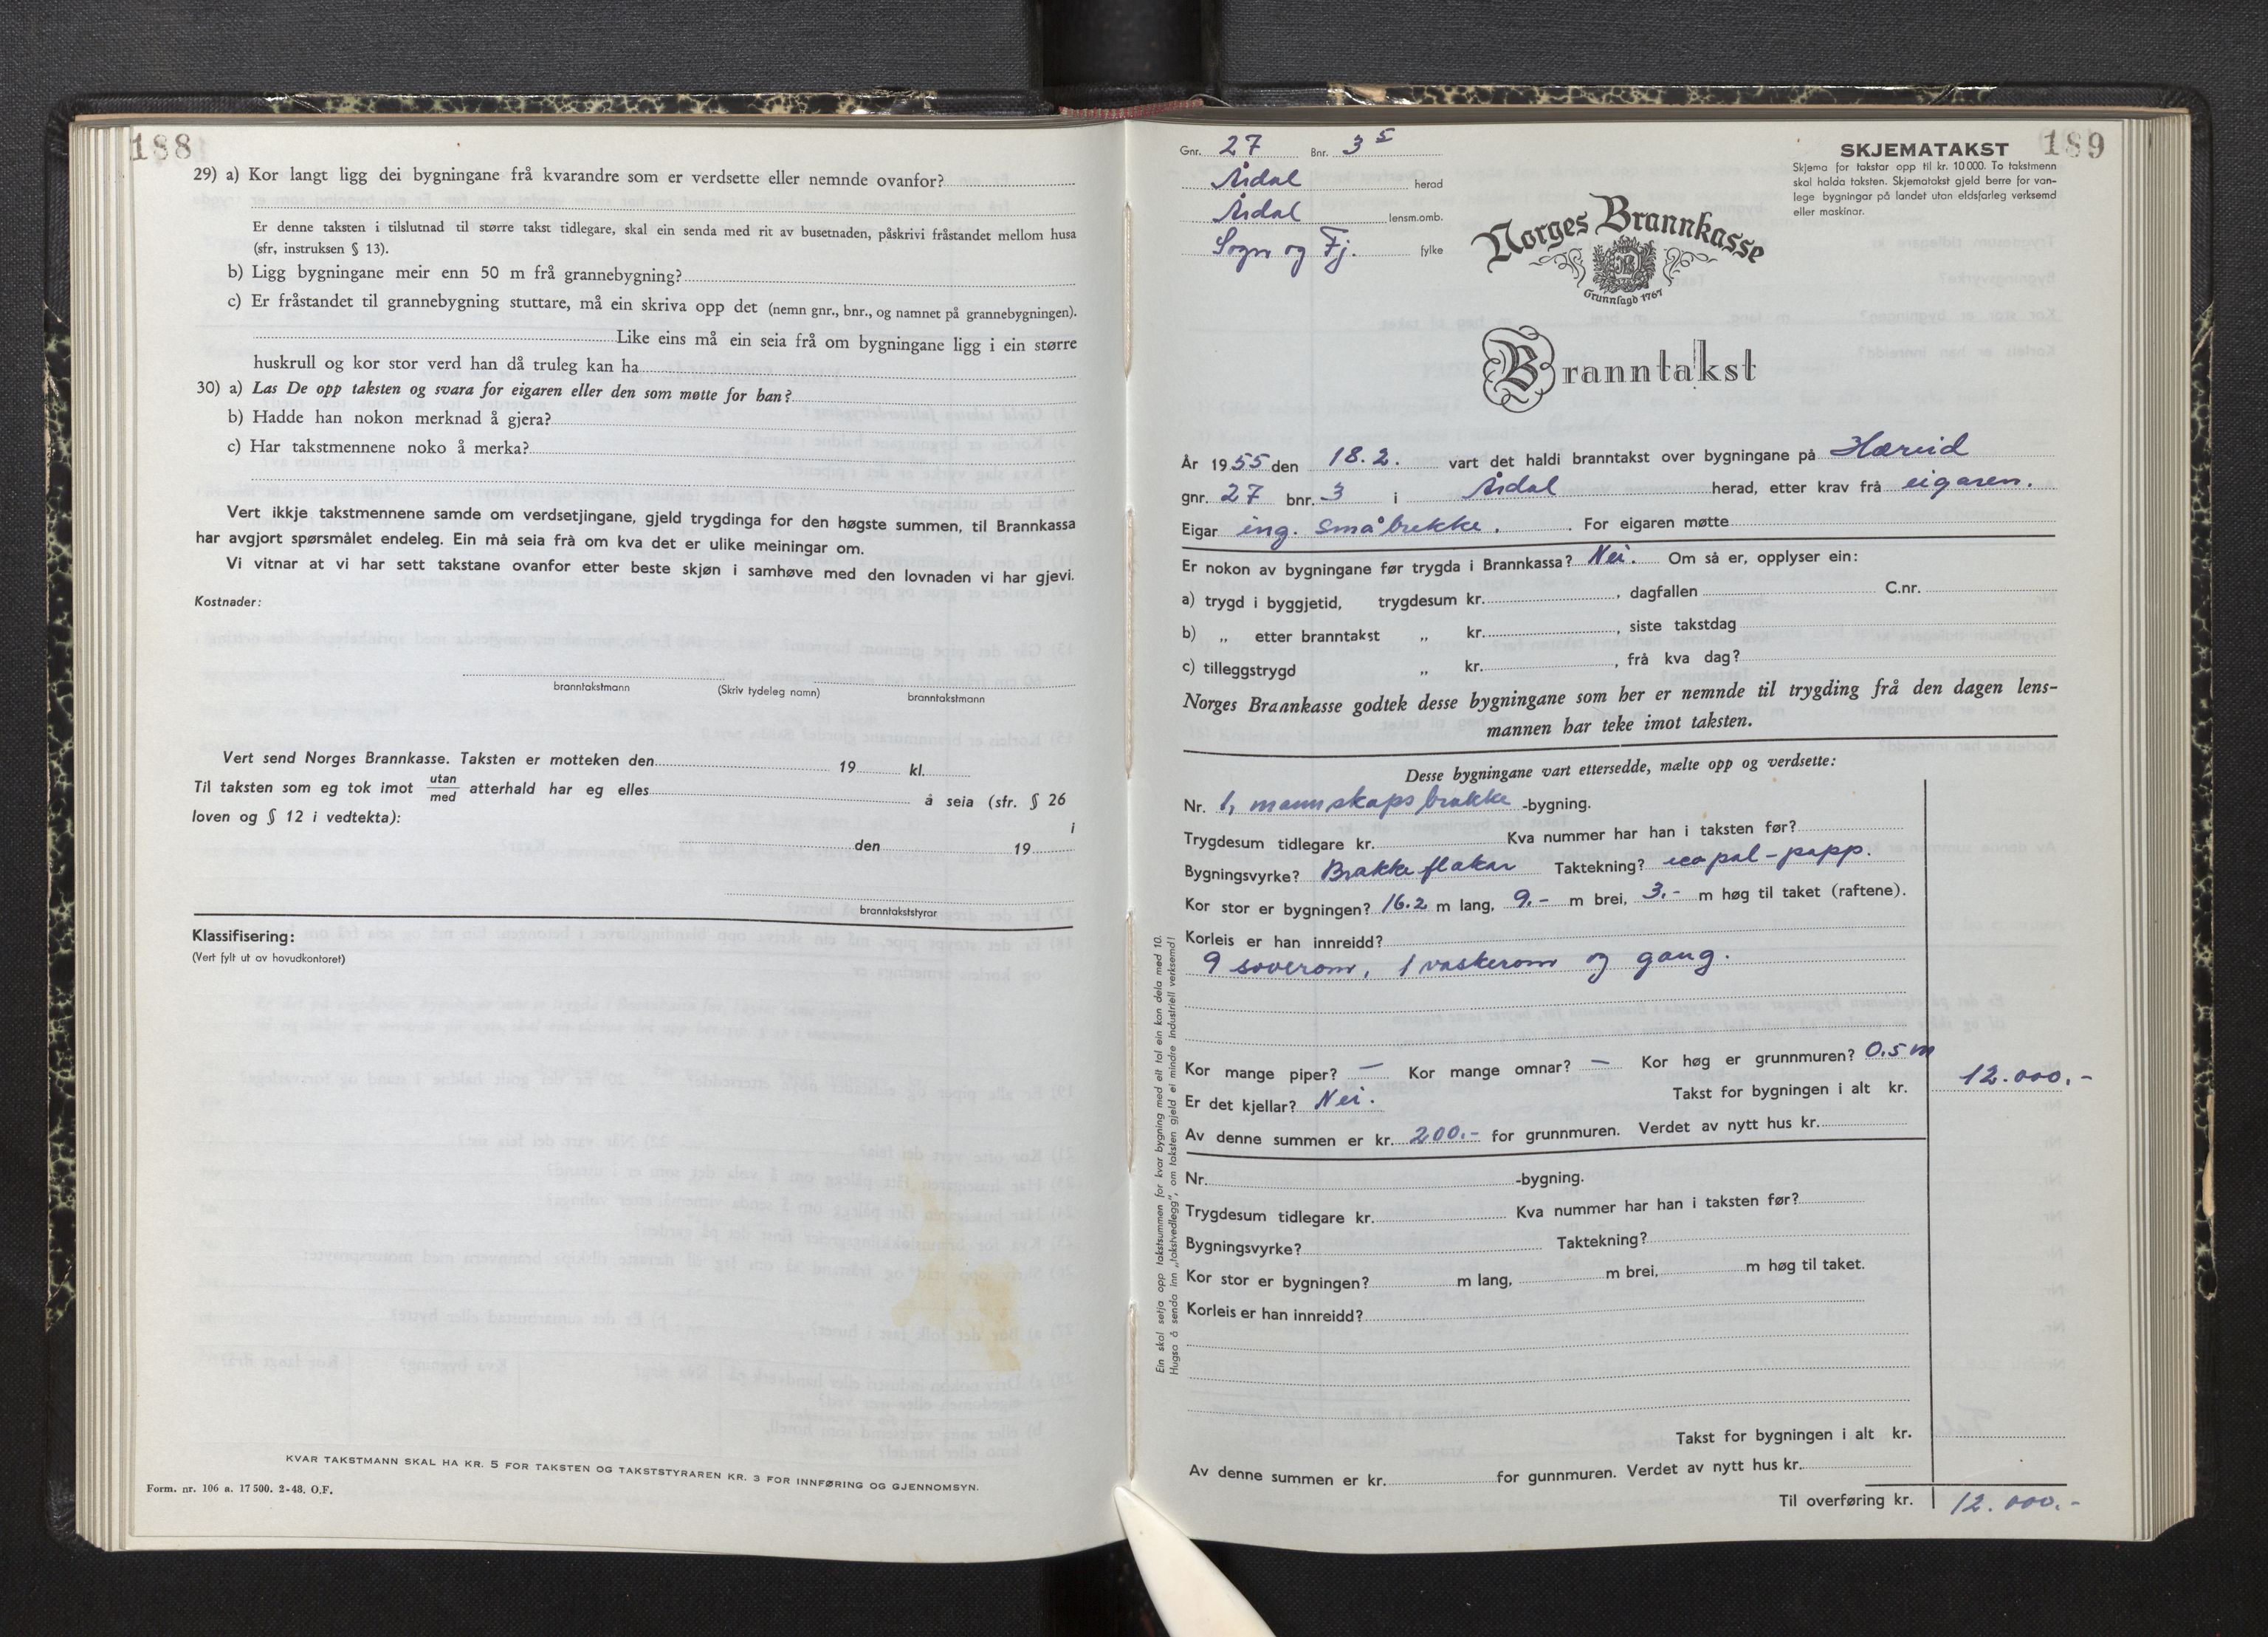 188
29) a) Kor langt ligg dei bygningane frå kvarandre som er verdsette eller nemnde ovanfor?
Er denne taksten i tilslutnad til større takst tidlegare, skal ein senda med rit av busetnaden, påskrivi fråstandet mellom husa
(sfr, instruksen § 13).
b) Ligg bygningane meir enn 50 m frå grannebygning?
c) Er fråstandet til grannebygning stuttare, må ein skriva opp det (nemn gnr., bnr., og namnet på grannebygningen).
Like eins må ein seia frå om bygningane ligg i ein større
huskrull og kor stor verd han då truleg kan ha
30) a) Las De opp taksten og svara for eigaren eller den som møtte for han?
b) Hadde han nokon merknad å gjera?
c) Har takstmennene noko å merka?
Vert ikkje takstmennene samde om verdsetjingane, gjeld trygdinga for den høgste summen, til Brannkassa
har avgjort spørsmålet endeleg. Ein må seia frå om kva det er ulike meiningar om.
Vi vitnar at vi har sett takstane ovanfor etter beste skjøn i samhøve med den lovnaden vi har gjevi.
Kostnader:
branntakstmann (Skriv tydeleg namn) branntakstmann
Vert send Norges Brannkasse. Taksten er motteken den 19 kl.
Til taksten som eg tok imot utan/med atterhald har eg elles å seia (sfr. § 26
loven og § 12 i vedtekta):
i
den 19
branntakststyrar
Klassifisering:
(Vert fylt ut av hovudkontoret)
KVAR TAKSTMANN SKAL HA KR. 5 FOR TAKSTEN OG TAKSTSTYRAREN KR. 3 FOR INNFØRING OG GJENNOMSYN.
Form. nr. 106 a. 17 500. 2-48. O.F.
Gnr. 27 Bnr. 3 5
Årdal herad
Årdal lensm.omb.
Sogn og Fj. fylke
SKJEMATAKST 189
Skjema for takstar opp til kr. 10 000. To takstmenn
skal halda taksten. Skjematakst gjeld berre for van-
lege bygningar på landet utan eldsfarleg verksemd
eller maskinar.
Norges Brannkasse
Grunnlagd 1767
Branntakst
År 1955 den 18.2. vart det haldi branntakst over bygningane på Hæreid
gnr. 27 bnr. 3 i Årdal herad, etter krav frå eigaren.
Eigar ing. Småbrekke. For eigaren møtte
Er nokon av bygningane før trygda i Brannkassa? Nei. Om så er, opplyser ein:
a) trygd i byggjetid, trygdesum kr. , dagfallen C.nr.
b) „ etter branntakst „ kr. , siste takstdag
c) tilleggstrygd „ kr. , frå kva dag?
Norges Brannkasse godtek desse bygningane som her er nemnde til trygding frå den dagen lens-
mannen har teke imot taksten.
Desse bygningane vart ettersedde, mælte opp og verdsette:
Nr. 1, mannskapsbrakke -bygning.
Trygdesum tidlegare kr. Kva nummer har han i taksten før?
Bygningsvyrke? Brakkeflakar Taktekning? icopal-papp.
Kor stor er bygningen? 16.2 m lang, 9.- m brei, 3.- m høg til taket (raftene).
Korleis er han innreidd?
9 soverom, 1 vaskerom og gang.
Kor mange piper? — Kor mange omnar? — Kor høg er grunnmuren? 0.5 m
Er det kjellar? Nei. Takst for bygningen i alt kr. 12.000.-
Av denne summen er kr. 200.- for grunnmuren. Verdet av nytt hus kr.
Nr. -bygning.
Trygdesum tidlegare kr. Kva nummer har han i taksten før?
Bygningsvyrke? Taktekning?
Kor stor er bygningen? m lang, m brei, m høg til taket.
Korleis er han innreidd?
Takst for bygningen i alt kr.
Av denne summen er kr. for gunnmuren. Verdet av nytt hus kr.
Til overføring kr. 12.000.-
Ein skal setja opp takstsummen for kvar bygning med eit tal ein kan dela med 10.
Hugsa å senda inn „takstvedlegg", om taksten gjeld ei mindre industriell verksemd!